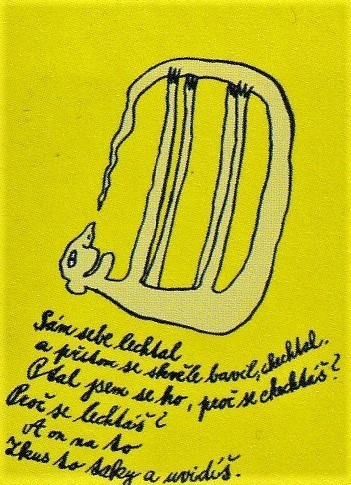 Sám sebe lechtal
a přitom se skvěle bavil, chechtal.
Ptal jsem se ho, proč se chechtáš?
Proč se lechtáš?
A on na to
Zkus to taky a uvidíš.